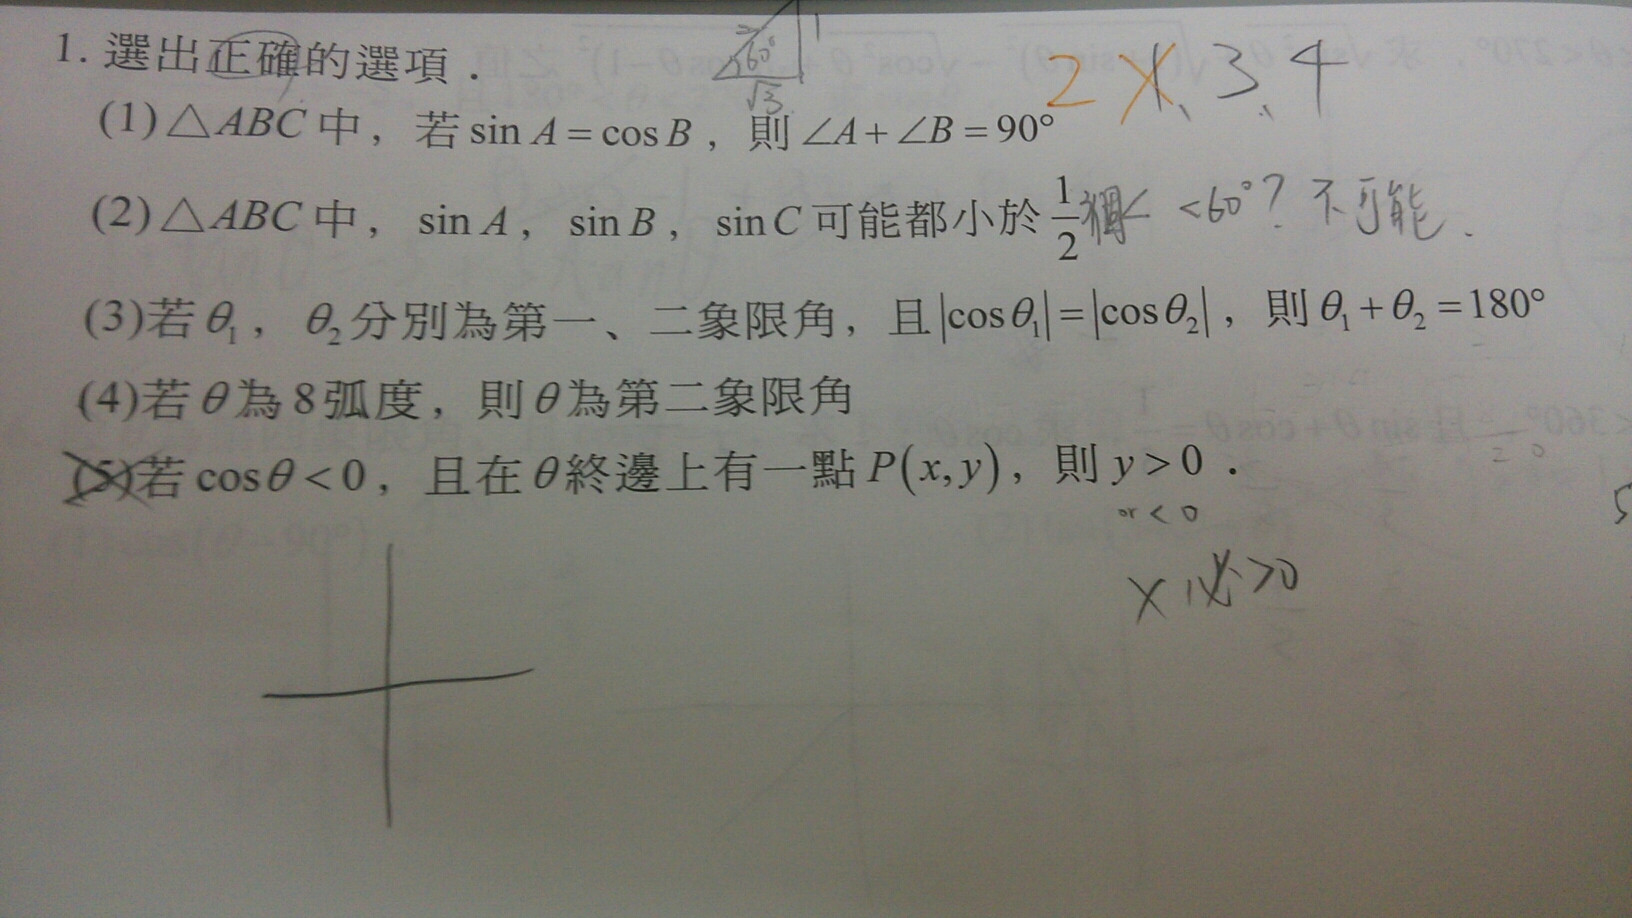 1. 選出正確的選項．
60°
1
√3
2 1、3、4
(1) △ABC 中，若 sin A = cos B，則 ∠A + ∠B = 90°
(2) △ABC 中，sin A，sin B，sin C 可能都小於 1/2 <60°? 不可能.
(3)若 θ₁，θ₂ 分別為第一、二象限角，且 |cos θ₁| = |cos θ₂|，則 θ₁ + θ₂ = 180°
(4)若 θ 為 8 弧度，則 θ 為第二象限角
(5)若 cos θ < 0，且在 θ 終邊上有一點 P(x, y)，則 y > 0．
or < 0
x 必 >0